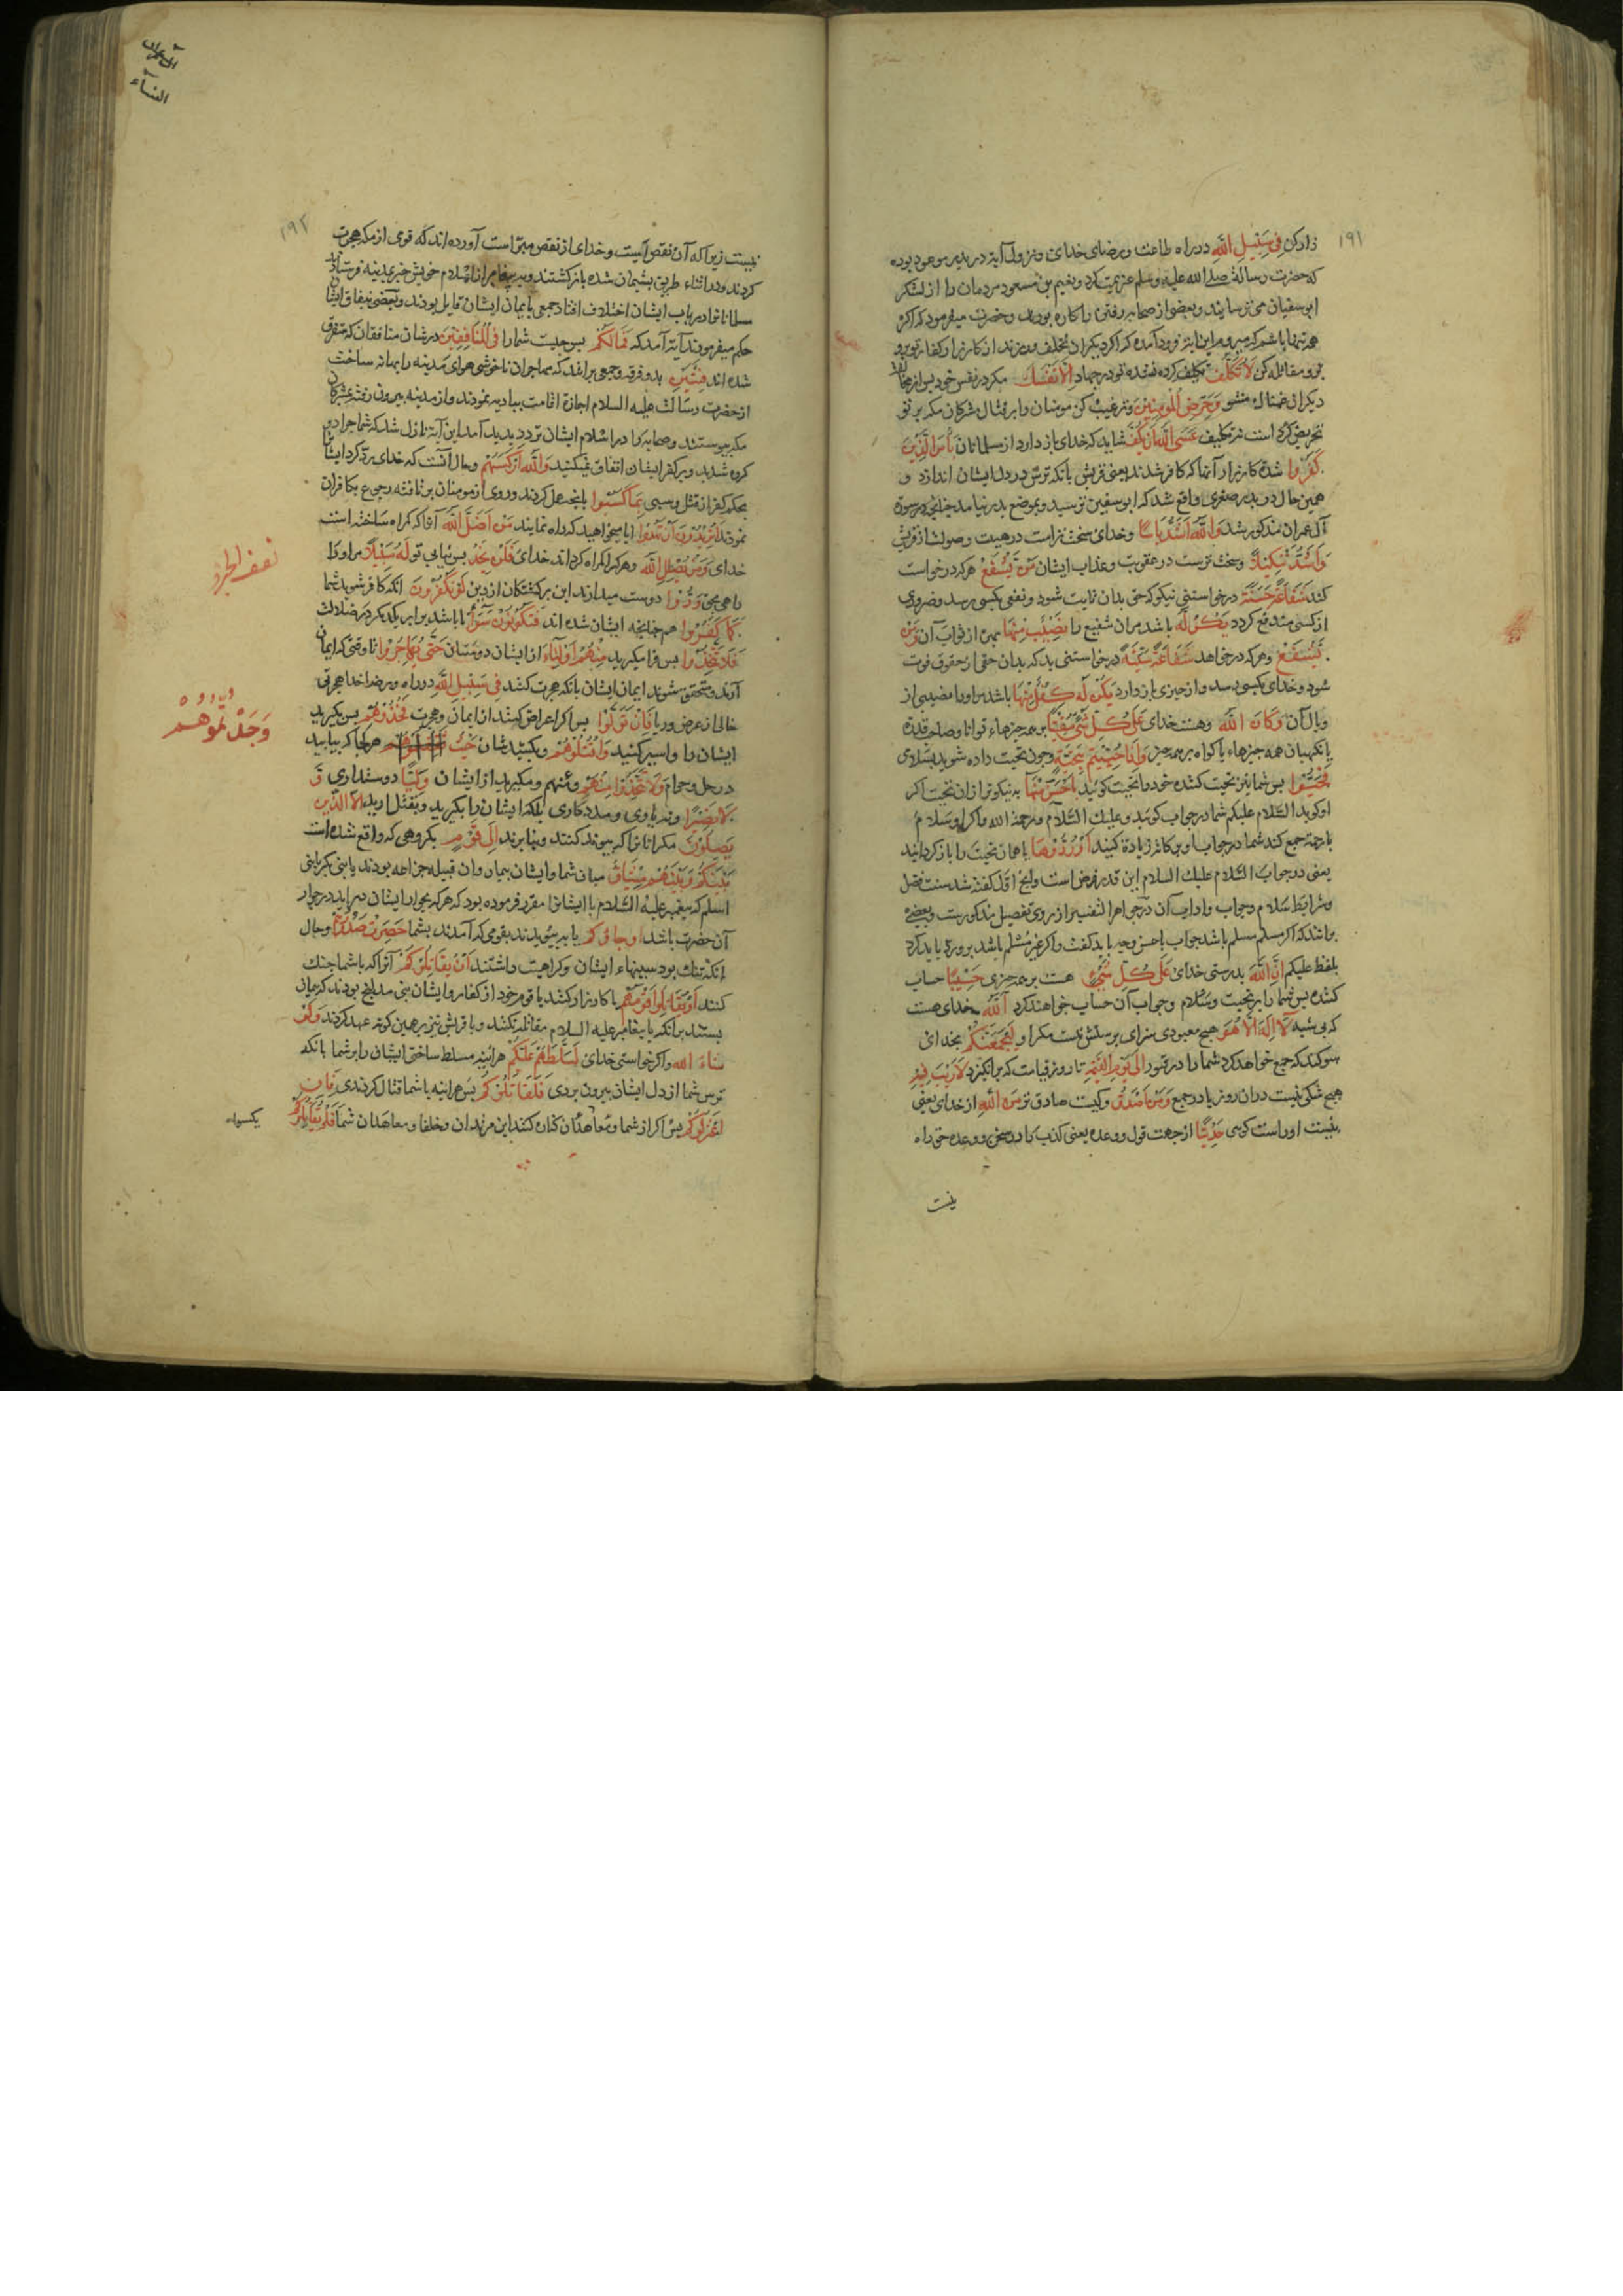 ۱۹۱
زار کن فِی سَبِیلِ اللهِ در راه طاعت و رضای خدای و نزول آیة در بدر موعود بوده
که حضرت رسالة صلے الله علیه وسلم عزیمت کرد و نعیم بن مسعود مردمان را از لشکر
ابو سفیان می ترسانید و بعضی از صحابه رفتن را کاره بودن وحضرت میفرمود که اکر
همه تنها باشم که میروم این آیة فرود آمده که اکر دیکران تخلف ورزند از کارزار کفار تو برو
برو مقاتله کن لَا تُكَلَّفُ تکلیف کرده نشده تو در جهاد اِلَّا نَفْسَكَ مکر در نفس خود پس از مخالفت
دیکران غمناك مشو وَحَرِّضِ الْمُؤْمِنِینَ وترغیب کن مومنان را بر قتال مشرکان مکه بر تو
تحریض کردن است نه تکلیف عَسَی اللهُ اَنْ یَكُفَّ شاید که خدای باز دارد از مسلمانان بَأْسَ الَّذِینَ
كَفَرُوا شدة کارزار آنها که کافر شدند یعنی قریش بانکه ترس در دل ایشان اندازد و
همین حال در بدر صغری واقع شد که ابو سفین ترسید و بموضع بدر نیامد چنانچه در سورة
آل عمران مذکور شد وَاللهُ اَشَدُّ بَأْسًا وخدای سخت تر است در هیبت وصولت از قریش
وَاَشَدُّ تَنْكِیلًا وسخت ترست در عقوبت وعذاب ایشان مَنْ یَشْفَعْ هر که درخواست
کند شَفَاعَةً حَسَنَةً درخواستنی نیکو که حق بدان ثابت شود ونفعی بکسی رسد وضرری
از کسی مندفع کردد یَكُنْ لَهُ باشد مران شفیع را نَصِیبٌ مِنْهَا بهره از ثواب آن وَمَنْ
یَشْفَعْ وهر که درخواهد شَفَاعَةً سَیِّئَةً درخواستنی بد که بدان حقی از حقوق فوت
شود وخدای بکسی رسد وازخیری باز دارد یَكُنْ لَهُ كِفْلٌ مِنْهَا باشد مراورا نصیبی از
وبال آن وَكَانَ اللهُ وهست خدای عَلَی كُلِّ شَیْءٍ مُقِیتًا بر همه چیزهاء توانا وصاحب قدرة
یا نکهبان همه چیزهاء یا کواه بر همه چیز وَاِذَا حُیِّیتُمْ بِتَحِیَّةٍ وچون تحیت داده شوید بسلامی
فَحَیُّوا پس شما نیز تحیت کننده خود را تحیت کوئید بِاَحْسَنَ مِنْهَا به نیکوتر از ان تحیت اکر
او کوید السلام علیکم شما در جواب کوئید وعلیك السلام ورحمة الله واکر او سلام
با رحمة جمع کند شما در جواب او برکاته زیادة کنید اَوْ رُدُّوهَا یا همان تحیت را باز کردانید
یعنی در جواب السلام علیك السلام این قدر فرض است وانچه اول کفته شد سنت فضل
وشرایط سلام وجواب واداب آن در جواهر التفسیر از روی تفصیل مذکورست وبعضے
برانند که اکر مسلم مسلم باشد جواب باحسن وجه باید کفت واکر غیر مسلم باشد بروردّ باید کرد
بلفظ علیکم اِنَّ اللهَ بدرستی خدای عَلَی كُلِّ شَیْءٍ هست بر همه چیزی حَسِیبًا حساب
کننده پس شما را بر تحیت وسلام وجواب آن حساب خواهند کرد اَللهُ خدای هست
که بی شبه لَا اِلٰهَ اِلَّا هُوَ هیچ معبودی سزای پرستش نیست مکر او لَیَجْمَعَنَّكُمْ بخدای
سوکند که جمع خواهد کرد شما را در قبور اِلَی یَوْمِ الْقِیٰمَةِ تا روز قیامت که برانکیزد لَا رَیْبَ فِیهِ
هیچ شکی نیست دران روز یا در جمع وَمَنْ اَصْدَقُ وکیست صادق تر مِنَ اللهِ از خدای یعنی
نیست اوراست کوی حَدِیثًا از جهت قول ووعده یعنی کذب را در سخن ووعده حق راه
نیست
آل عمران
النساء
۱۹۲
نیست زیرا که آن نقص است وخدای از نقص مبرّا است آورده اند که قومی از مکه هجرت
کردند ودر اثناء طریق پشیمان شده باز کشتند وبه پیغامبر از اسلام خویش خبر بمدینه فرستادند
مسلمانانرا در باب ایشان اختلاف افتاد جمعی بایمان ایشان قایل بودند وبعضی بنفاق ایشان
حکم میفرمودند آیة آمد که فَمَا لَكُمْ پس چیست شما را فِی الْمُنَافِقِینَ در شان منافقان که متفرق
شده اند فِئَتَیْنِ بدو فرقه وجمعی برانند که مهاجران ناخوشی هوای مدینه را بهانه ساخته
از حضرت رسالت علیه السلام اجازة اقامت ببادیه نمودند واز مدینه بیرون رفته بمشرکان
مکه پیوستند وصحابه را در اسلام ایشان تردد پدید آمد این آیة نازل شد که شما چرا دو
کروه شدید وبر کفر ایشان اتفاق نمیکنید وَاللهُ اَرْكَسَهُمْ وحال آنست که خدای ردّ کرد ایشان
بحکم کفر از قتل وسبی بِمَا كَسَبُوا بانچه عمل کردند وروی از مومنان برتافته رجوع بکافران
نمودند اَتُرِیدُونَ اَنْ تَهْدُوا ایا میخواهید که راه نمایند مَنْ اَضَلَّ اللهُ آنرا که کمراه ساخته است
خدای وَمَنْ یُضْلِلِ اللهُ وهر کرا کمراه کرداند خدای فَلَنْ تَجِدَ پس نیابی تو لَهُ سَبِیلًا مر اورا
راهی بحق وَدُّوا دوست میدارند این برکشتکان از دین لَوْ تَكْفُرُونَ انکه کافر شوید شما
كَمَا كَفَرُوا همچنانچه ایشان شده اند فَتَكُونُونَ سَوَاءً تا باشد برابر یکدیکر در ضلالت
فَلَا تَتَّخِذُوا پس فرا مکیرید مِنْهُمْ اَوْلِیَاءَ از ایشان دوستان حَتَّی یُهَاجِرُوا تا وقتی که ایمان
آرند ومتحقق شوند ایمان ایشان بانکه هجرت کنند فِی سَبِیلِ اللهِ در راه ورضاء خدا هجرتی
خالی از عرض وریا فَاِنْ تَوَلَّوْا پس اکر اعراض کنند از ایمان وهجرت فَخُذُوهُمْ پس بکیرید
ایشان را واسیر کنید وَاقْتُلُوهُمْ وبکشید شان حَیْثُ هر کجا که بیابید
وَجَدْتُمُوهُمْ
در حل وحرم وَلَا تَتَّخِذُوا مِنْهُمْ ومکیرید از ایشان وَلِیًّا دوستداری وَ
لَا نَصِیرًا ونه یاوری ومددکاری بلکه ایشان را بکیرید وبقتل ارید اِلَّا الَّذِینَ
یَصِلُونَ مکر انانرا که پیوند کنند وپناه برند اِلَی قَوْمٍ بکروهی که واقع شده است
بَیْنَكُمْ وَبَیْنَهُمْ مِیثَاقٌ میان شما وایشان پیمان وان قبیله خزاعه بودند یا بنی بکر یا بنی
اسلم که پیغمبر علیه السلام با ایشانرا مقرر فرموده بود که هر که بجوار ایشان در اید در جوار
آن حضرت باشد اَوْ جَاءُوكُمْ یا بپیوندند بقومی که آمدند بشما حَصِرَتْ صُدُورُهُمْ وحال
انکه تنك بود سینهاء ایشان وکراهیت داشتند اَنْ یُقَاتِلُوكُمْ آنرا که با شما جنك
کنند اَوْ یُقَاتِلُوا قَوْمَهُمْ یا کارزار کنند با قوم خود از کفار وایشان بنی مدلج بودند که پیمان
بستند برانکه با پیغامبر علیه السلام مقاتله نکنند وبا قریش نیز همین کونه عهد کردند وَلَوْ
شَاءَ الله واکر خواستی خدای لَسَلَّطَهُمْ عَلَیْكُمْ هراینه مسلط ساختی ایشان را بر شما بانکه
ترس شما از دل ایشان بیرون بردی فَلَقَاتَلُوكُمْ پس هراینه با شما قتال کردندی فَاِنِ
اعْتَزَلُوكُمْ پس اکر از شما ومعاهدان کناره کنند این مرتدان وخلفا ومعاهدان شما فَلَمْ یُقَاتِلُوكُمْ
یکسواء
نصف الجزء